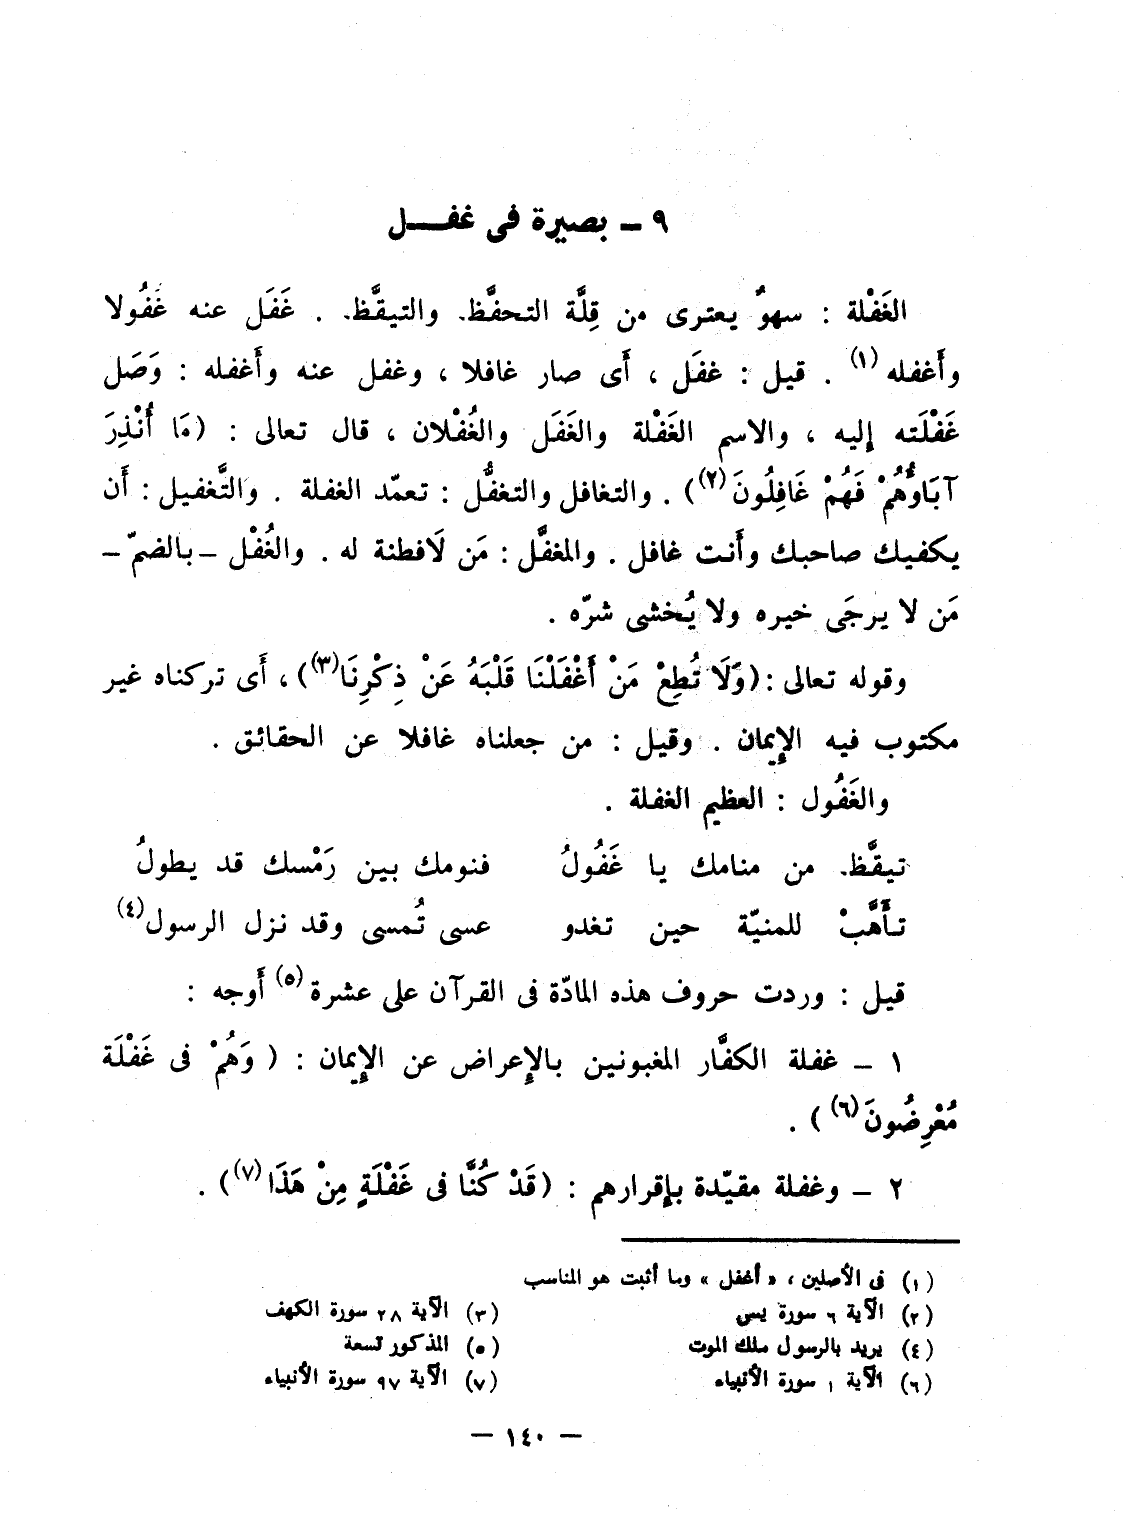 ٩ – بصيرة فى غفــل
الغَفْلة : سهوٌ يعترى من قِلَّة التحفَّظ. والتيقَّظ. . غَفَل عنه غُفُولا
وأَغفله (١) . قيل : غفَل ، أَى صار غافلا ، وغفل عنه وأَغفله : وَصَل
غَفْلَته إليه ، والاسم الغَفْلة والغَفَل والغُفْلان ، قال تعالى : (مَا أُنْذِرَ
آبَاؤُهُمْ فَهُمْ غَافِلُونَ(٢)) . والتغافل والتغفُّل : تعمّد الغفلة . والتَّغفيل : أَن
يكفيك صاحبك وأَنت غافل . والمغفَّل : مَن لَافطنة له . والغُفْل – بالضمّ –
مَن لا يرجَى خيره ولا يُخشى شرّه .
وقوله تعالى : (وَلَا تُطِعْ مَنْ أَغْفَلْنَا قَلْبَهُ عَنْ ذِكْرِنَا(٣)) ، أَى تركناه غير
مكتوب فيه الإِيمان . وقيل : من جعلناه غافلا عن الحقائق .
والغَفُول : العظيم الغفلة .
تيقَّظ. من منامك يا غَفُولُ فنومك بين رَمْسك قد يطولُ
تأَهَّبْ للمنيّة حين تغدو عسى تُمسى وقد نزل الرسول(٤)
قيل : وردت حروف هذه المادّة فى القرآن على عشرة(٥) أَوجه :
١ – غفلة الكفَّار المغبونين بالإِعراض عن الإِيمان : ( وَهُمْ فى غَفْلَة
مُعْرِضُونَ(٦) ) .
٢ – وغفلة مقيّدة بإِقرارهم : (قَدْ كُنَّا فى غَفْلَةٍ مِنْ هَذَا(٧)) .
(١) فى الأصلين ، «أغفل» وما أثبت هو المناسب
(٢) الآية ٦ سورة يس (٣) الآية ٢٨ سورة الكهف
(٤) يريد بالرسول ملك الموت (٥) المذكور تسعة
(٦) الآية ١ سورة الأنبياء (٧) الآية ٩٧ سورة الأنبياء
– ١٤٠ –